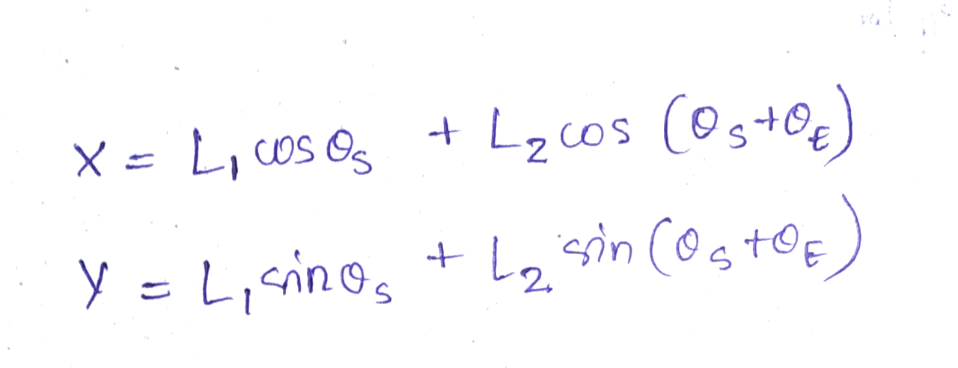 X = L₁ cos θₛ + L₂ cos (θₛ+θ_E)
y = L₁ sin θₛ + L₂ sin (θₛ+θ_E)